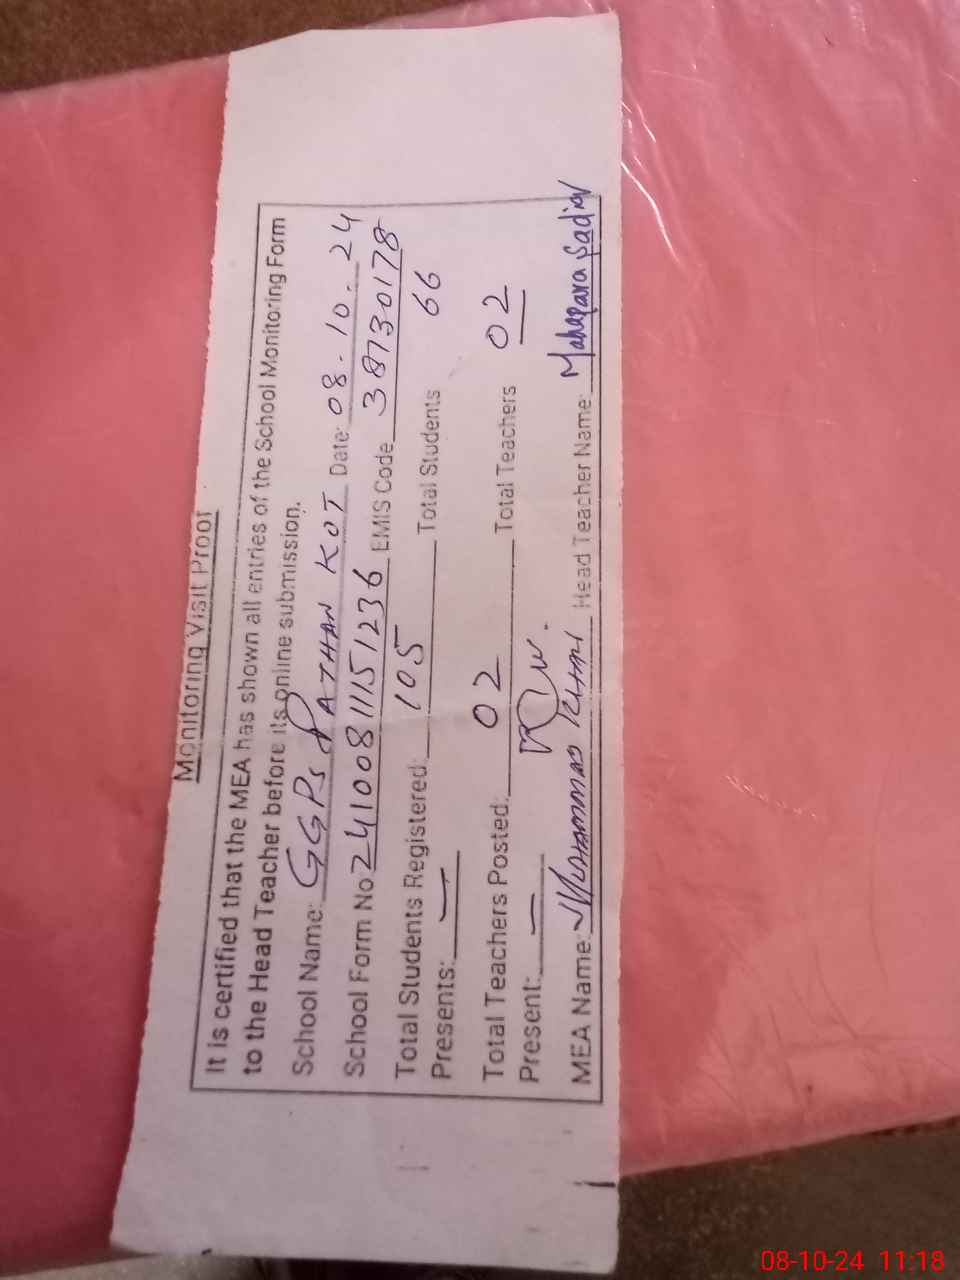 Monitoring Visit Proof
It is certified that the MEA has shown all entries of the School Monitoring Form
to the Head Teacher before its online submission.
School Name: GGPS PATHAN KOT Date: 08-10-24
School Form No 24100811151236 EMIS Code 38730178
Total Students Registered: 105 Total Students 66
Presents:
Total Teachers Posted: 02 Total Teachers 02
Present:
MEA Name: MUHAMMAD KHAN Head Teacher Name: Mahapara Sadiq
08-10-24 11:18